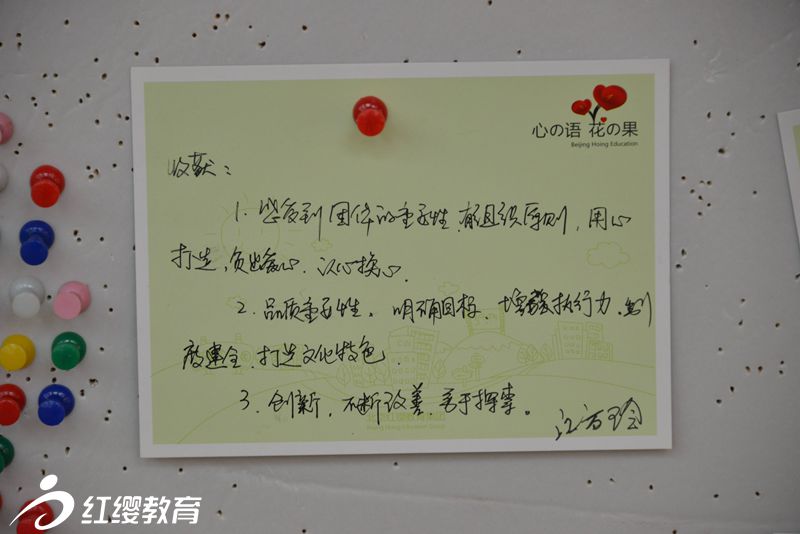 心の语 花の果
Beijing Hoing Education
收获：
1. 感受到团体的重要性，有组织原则，用心
打造，负出爱心，以心换心。
2. 品质重要性，明确目标，增强执行力，制
度建全，打造文化特色。
3. 创新，不断改善，善于探索。
红缨教育